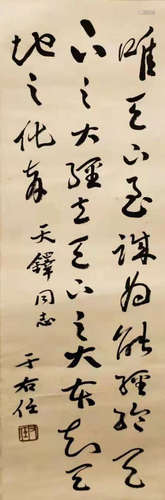 唯天下至诚为能经纶天
下之大经立天下之大本知天
地之化育
天铎同志
于右任